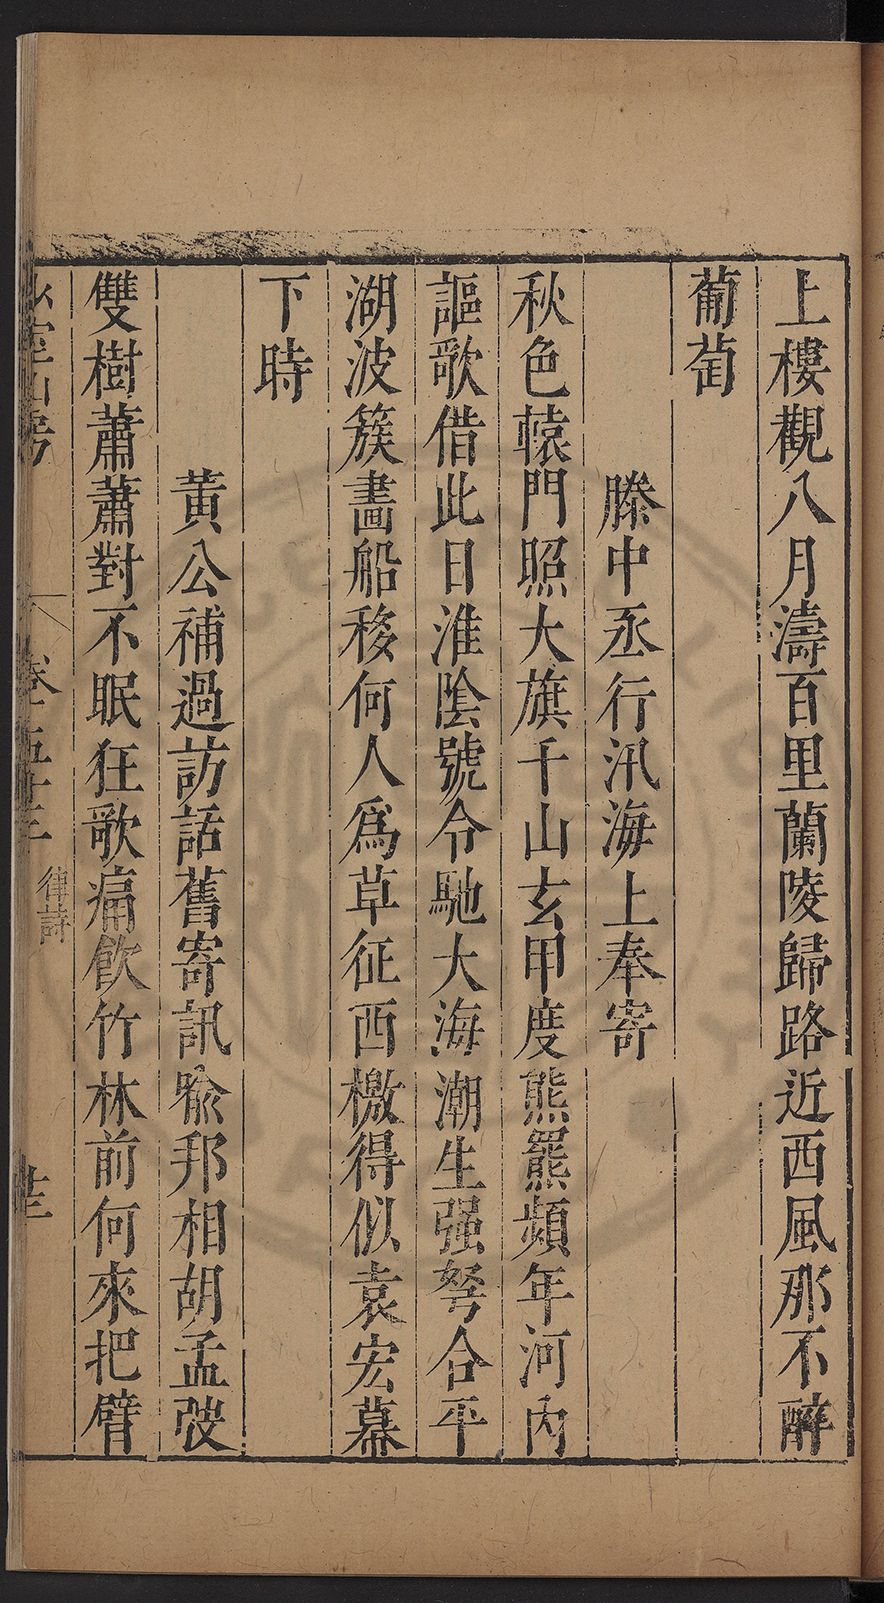 上樓觀八月濤百里蘭陵歸路近西風那不醉
葡萄
滕中丞行汛海上奉寄
秋色轅門照大旗千山玄甲度熊羆頻年河內
謳歌借此日淮陰號令馳大海潮生强弩合平
湖波簇畵船移何人爲草征西檄得似袁宏幕
下時
黄公補過訪話舊寄訊喻邦相胡孟弢
雙樹蕭蕭對不眠狂歌痛飲竹林前何來把臂
室山房
卷五十三
律詩